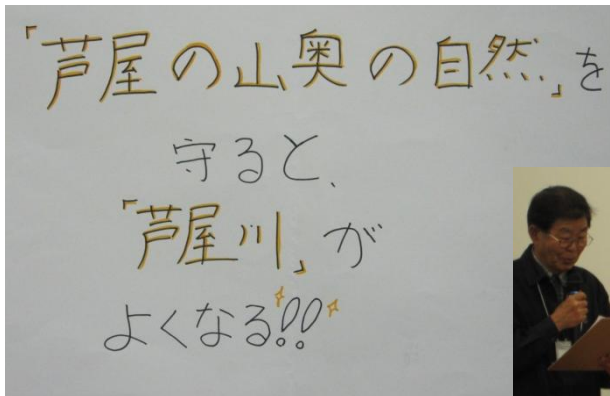 「芦屋の山奥の自然」を
守ると、
「芦屋川」が
よくなる!!